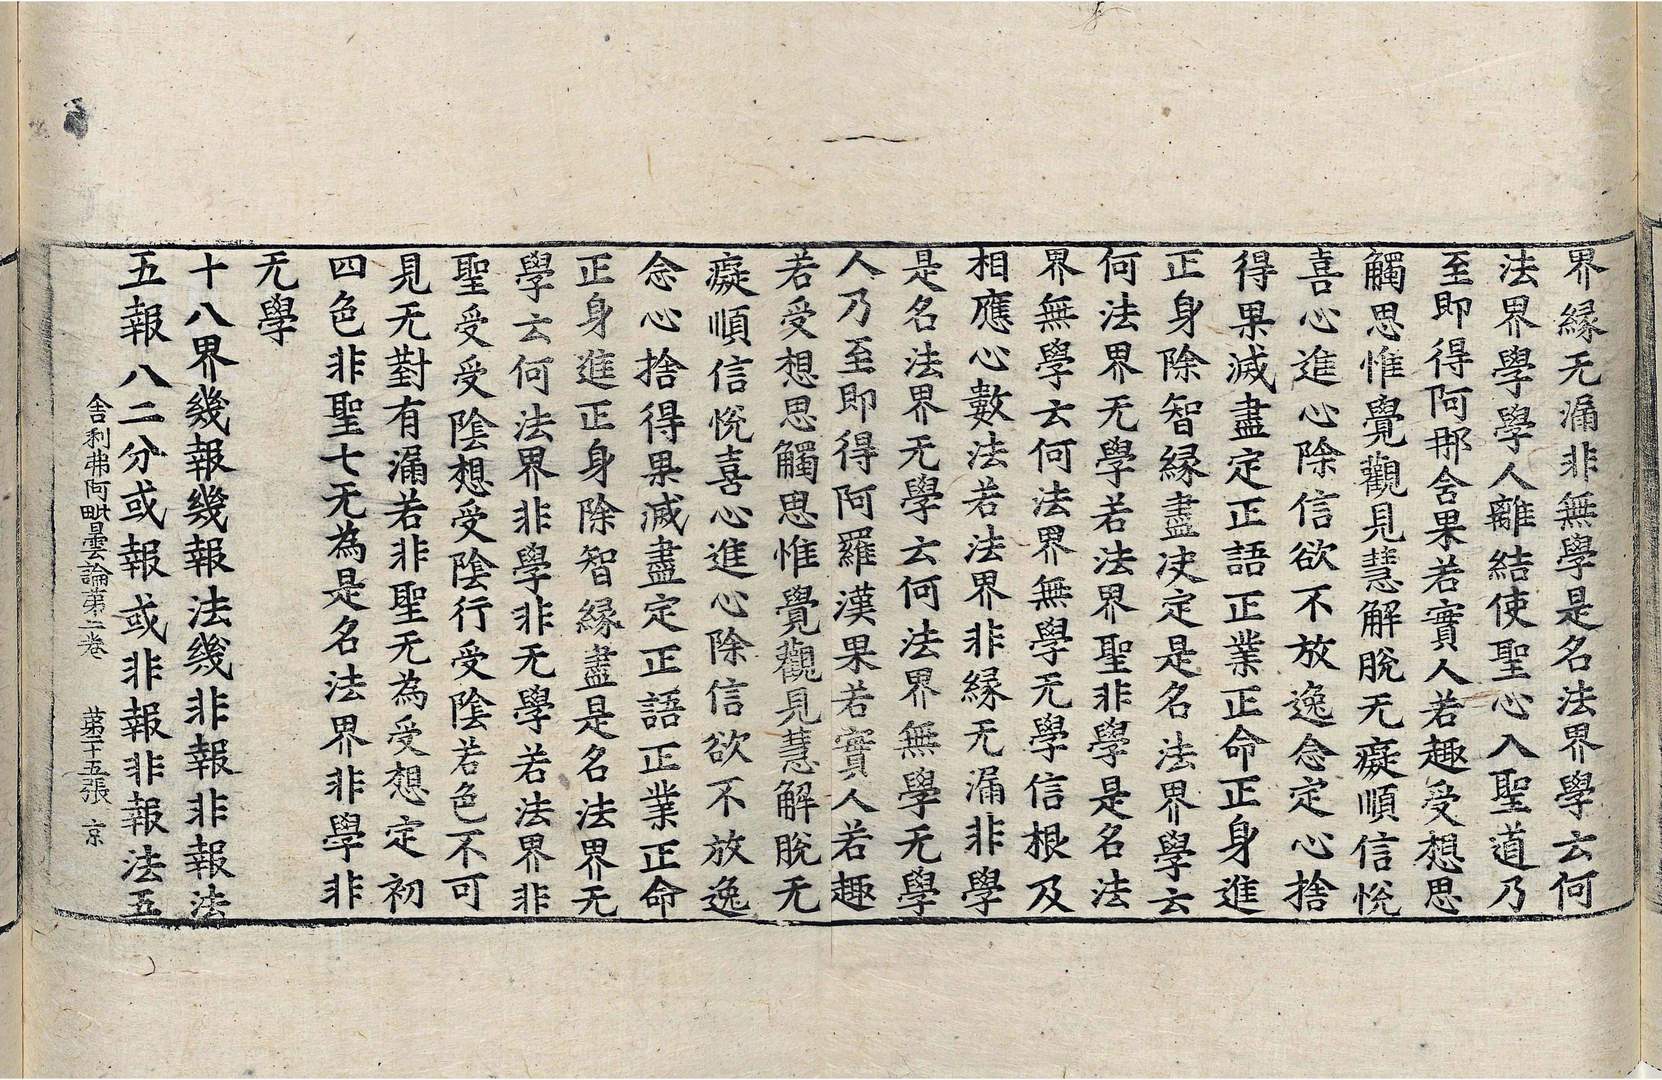 界緣无漏非無學是名法界學云何
法界學學人離結使聖心入聖道乃
至即得阿那含果若實人若趣受想思
觸思惟覺觀見慧解脫无癡順信悅
喜心進心除信欲不放逸念定心捨
得果滅盡定正語正業正命正身進
正身除智緣盡決定是名法界學云
何法界无學若法界聖非學是名法
界無學云何法界無學无學信根及
相應心數法若法界非緣无漏非學
是名法界无學云何法界無學无學
人乃至即得阿羅漢果若實人若趣
若受想思觸思惟覺觀見慧解脫无
癡順信悅喜心進心除信欲不放逸
念心捨得果滅盡定正語正業正命
正身進正身除智緣盡是名法界无
學云何法界非學非无學若法界非
聖受受陰想受陰行受陰若色不可
見无對有漏若非聖无為受想定初
四色非聖七无為是名法界非學非
无學
十八界幾報幾報法幾非報非報法
五報八二分或報或非報非報法五
舍利弗阿毗曇論第二卷 第二十五張 京